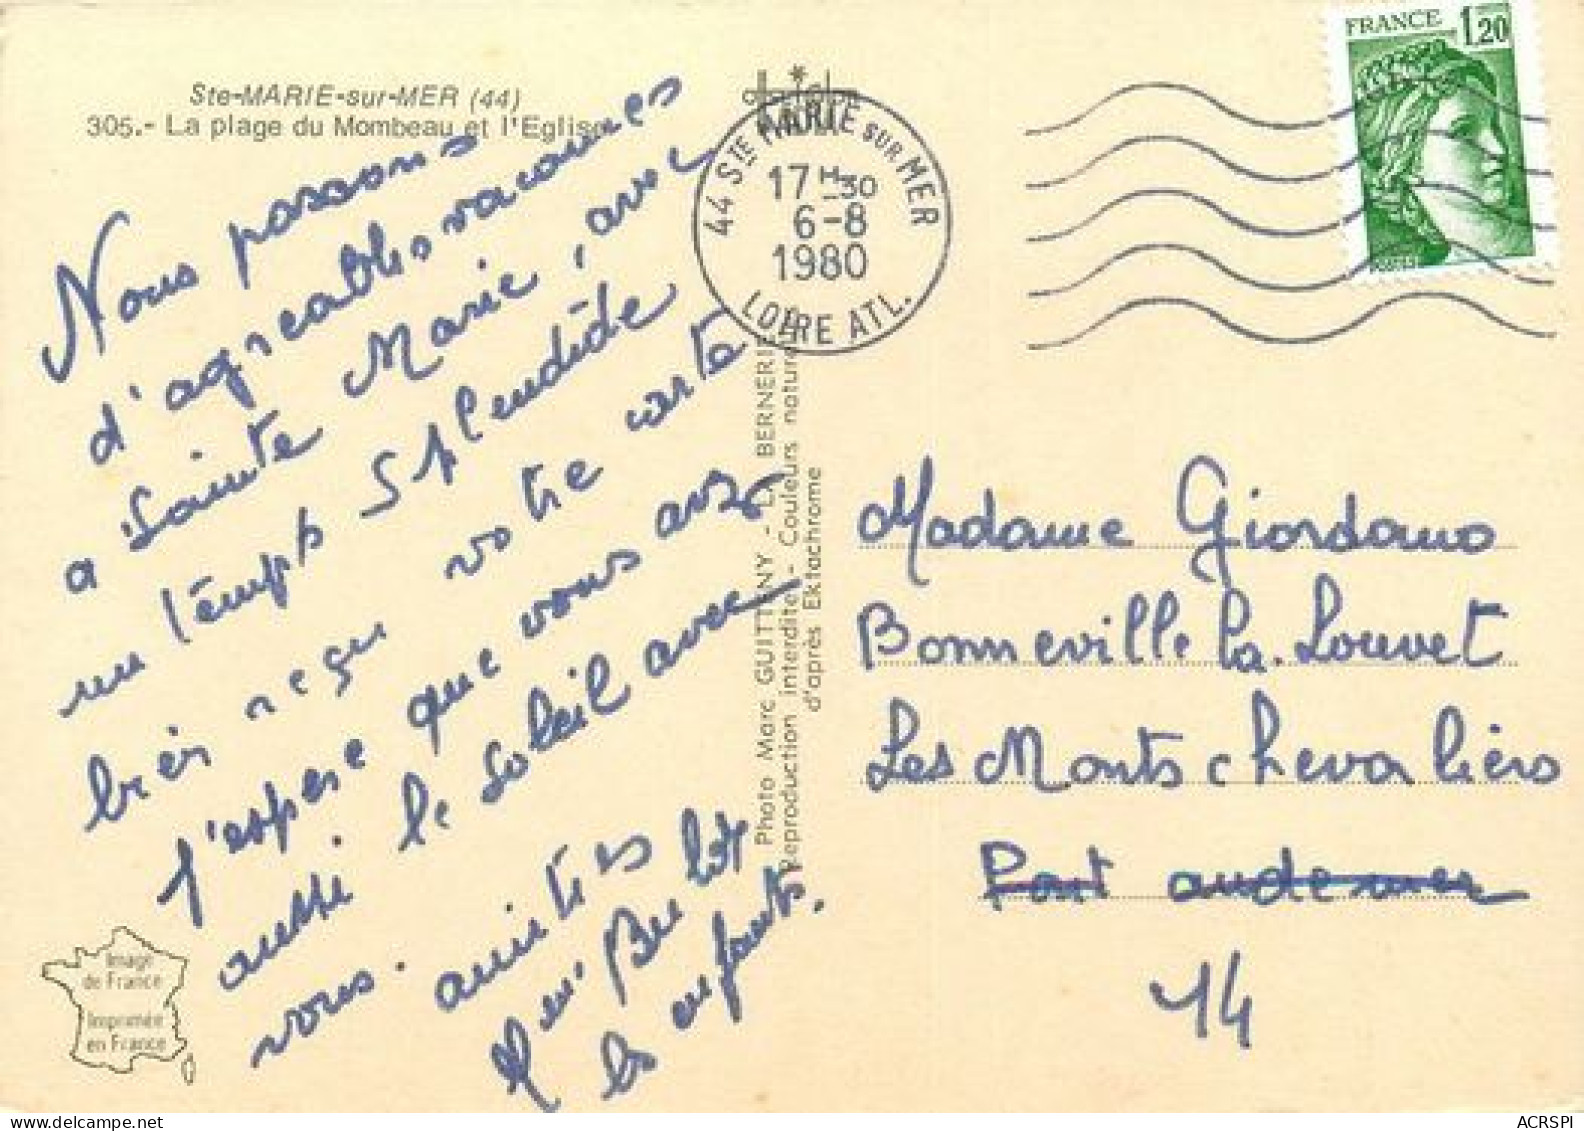 Ste-MARIE-sur-MER (44)
305.- La plage du Mombeau et l'Eglise
Nous passons
d'agreables vacances
a Sainte Marie, avec
un temps splendide
bien reçu votre carte
j'espere que vous avez
aussi le soleil avec
vous. amities
les enfants.
Image
de France
Imprimée
en France
Photo Marc GUITTENY - LA BERNERIE
Reproduction interdite - Couleurs nature
d'après Ektachrome
44 STE MARIE SUR MER
17H30
6-8
1980
LOIRE ATL.
FRANCE 1,20
Madame Giordano
Bonneville la Louvet
Les Monts chevaliers
Pont audemer
14
ACRSPI